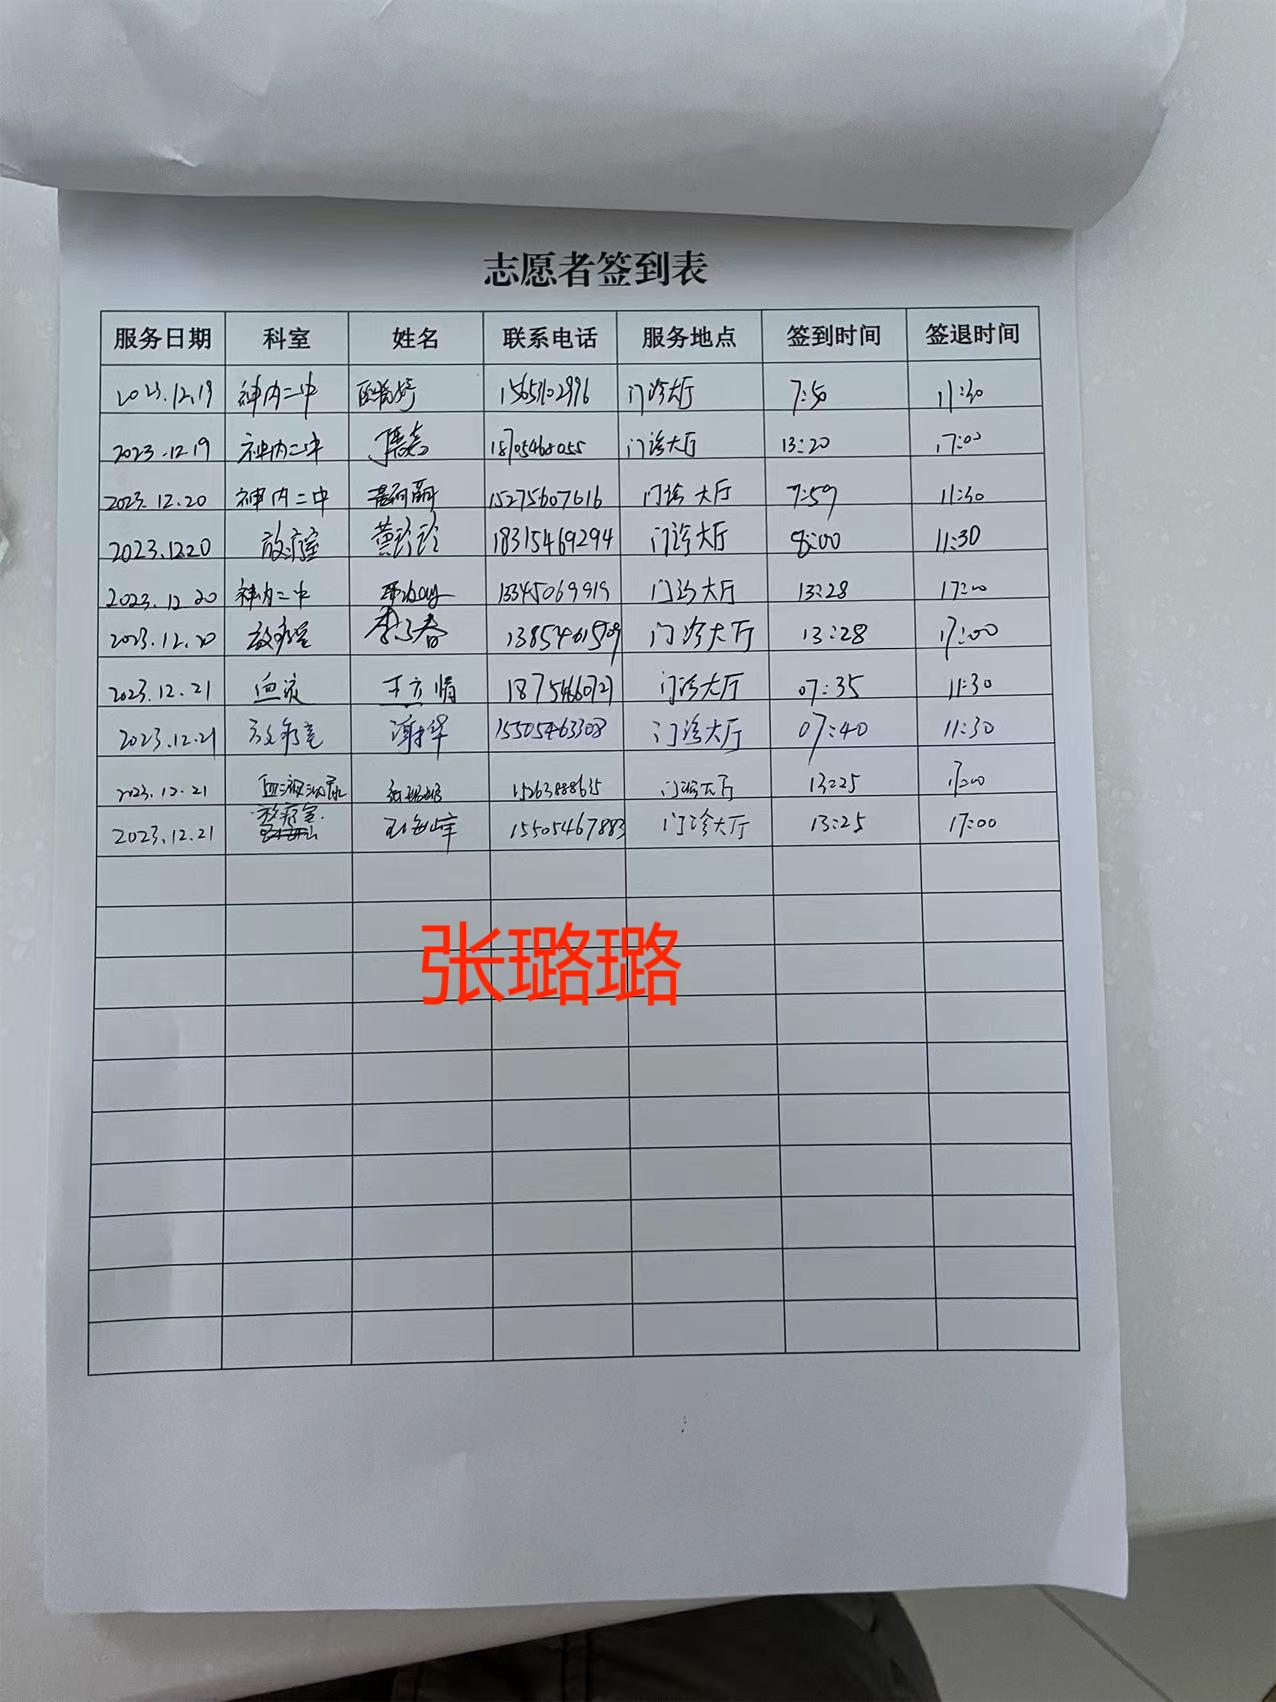 志愿者签到表
服务日期 科室 姓名 联系电话 服务地点 签到时间 签退时间
2023.12.19 神内二中 门诊大厅 7:50 11:30
2023.12.19 神内二中 门诊大厅 13:20 17:00
2023.12.20 神内二中 15275607616 门诊大厅 7:59 11:30
2023.12.20 放疗室 黄珍珍 18315469294 门诊大厅 8:00 11:30
2023.12.20 神内二中 13345069919 门诊大厅 13:28 17:00
2023.12.20 放疗室 门诊大厅 13:28 17:00
2023.12.21 血液 王立娟 18754660727 门诊大厅 07:35 11:30
2023.12.21 放疗室 谢华 15505463308 门诊大厅 07:40 11:30
2023.12.21 门诊大厅 13:25 17:00
2023.12.21 放疗室 15505467883 门诊大厅 13:25 17:00
张璐璐